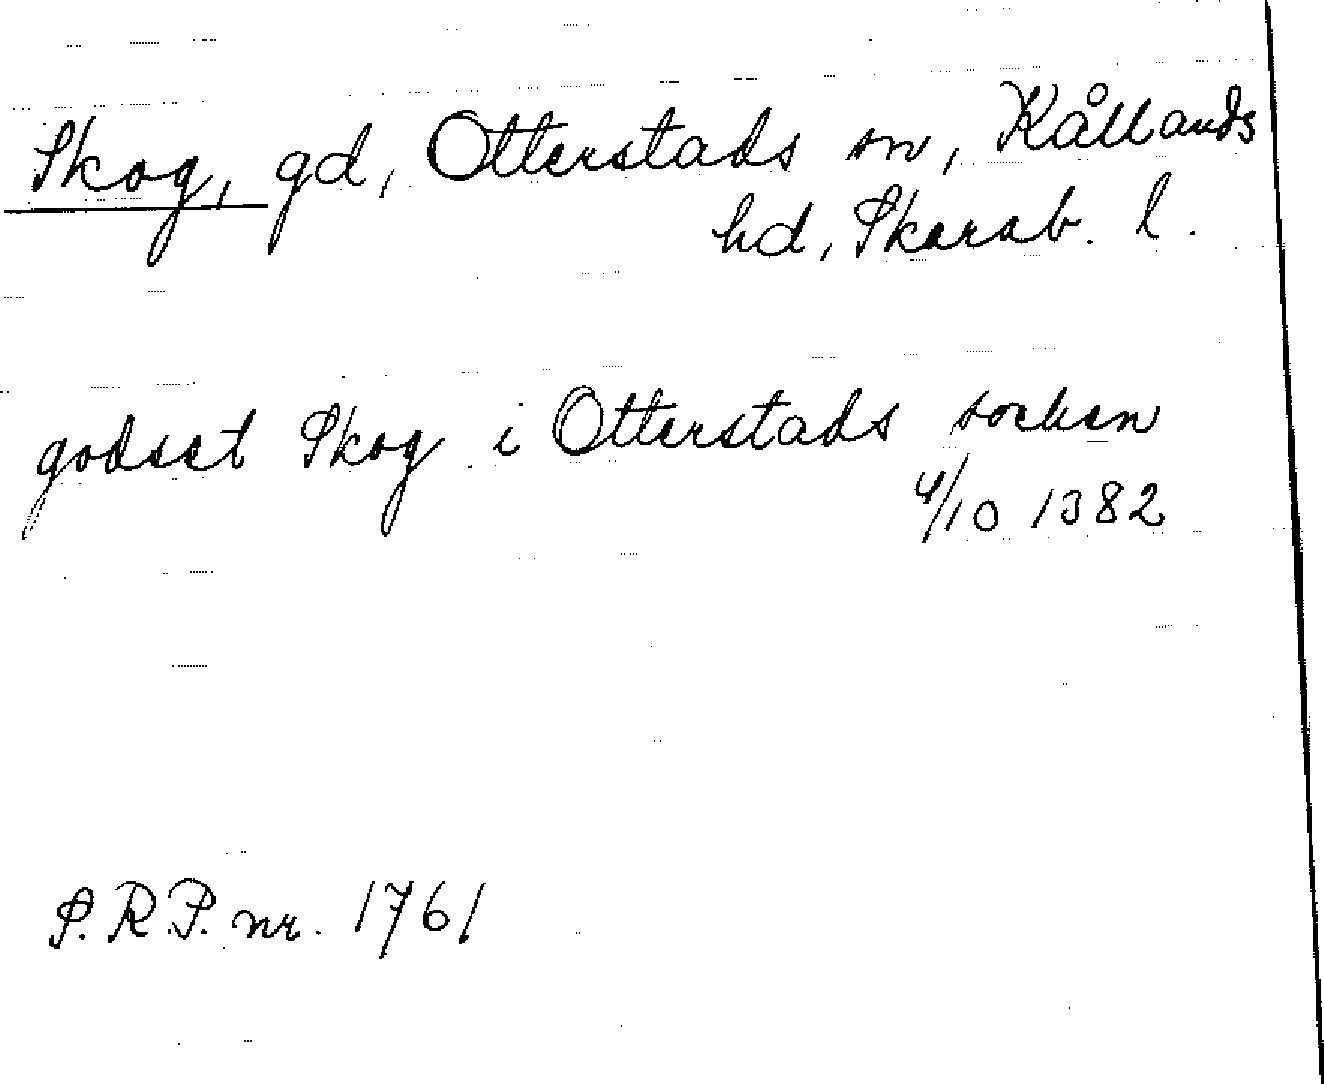 Skog, gd, Otterstads sn, Kållands
hd, Skarab. l.
godset Skog i Otterstads socken
4/10 1382
S.R.P. nr. 1761